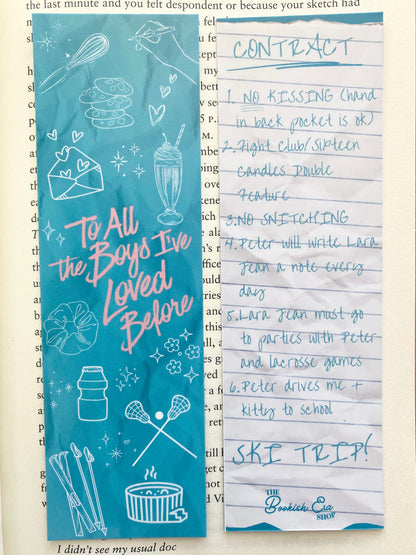 the last minute and you felt despondent or because your sketch had
To All
the Boys I've
Loved
Before
CONTRACT
1. NO KISSING (hand
in back pocket is ok)
2. Fight club/Sixteen
Candles Double
Feature
3. NO SNITCHING
4. Peter will write Lara
Jean a note every
day
5. Lara Jean must go
to parties with Peter
and lacrosse games
6. Peter drives me +
kitty to school
SKI TRIP!
THE
Bookish Era
SHOP
I didn't see my usual doc